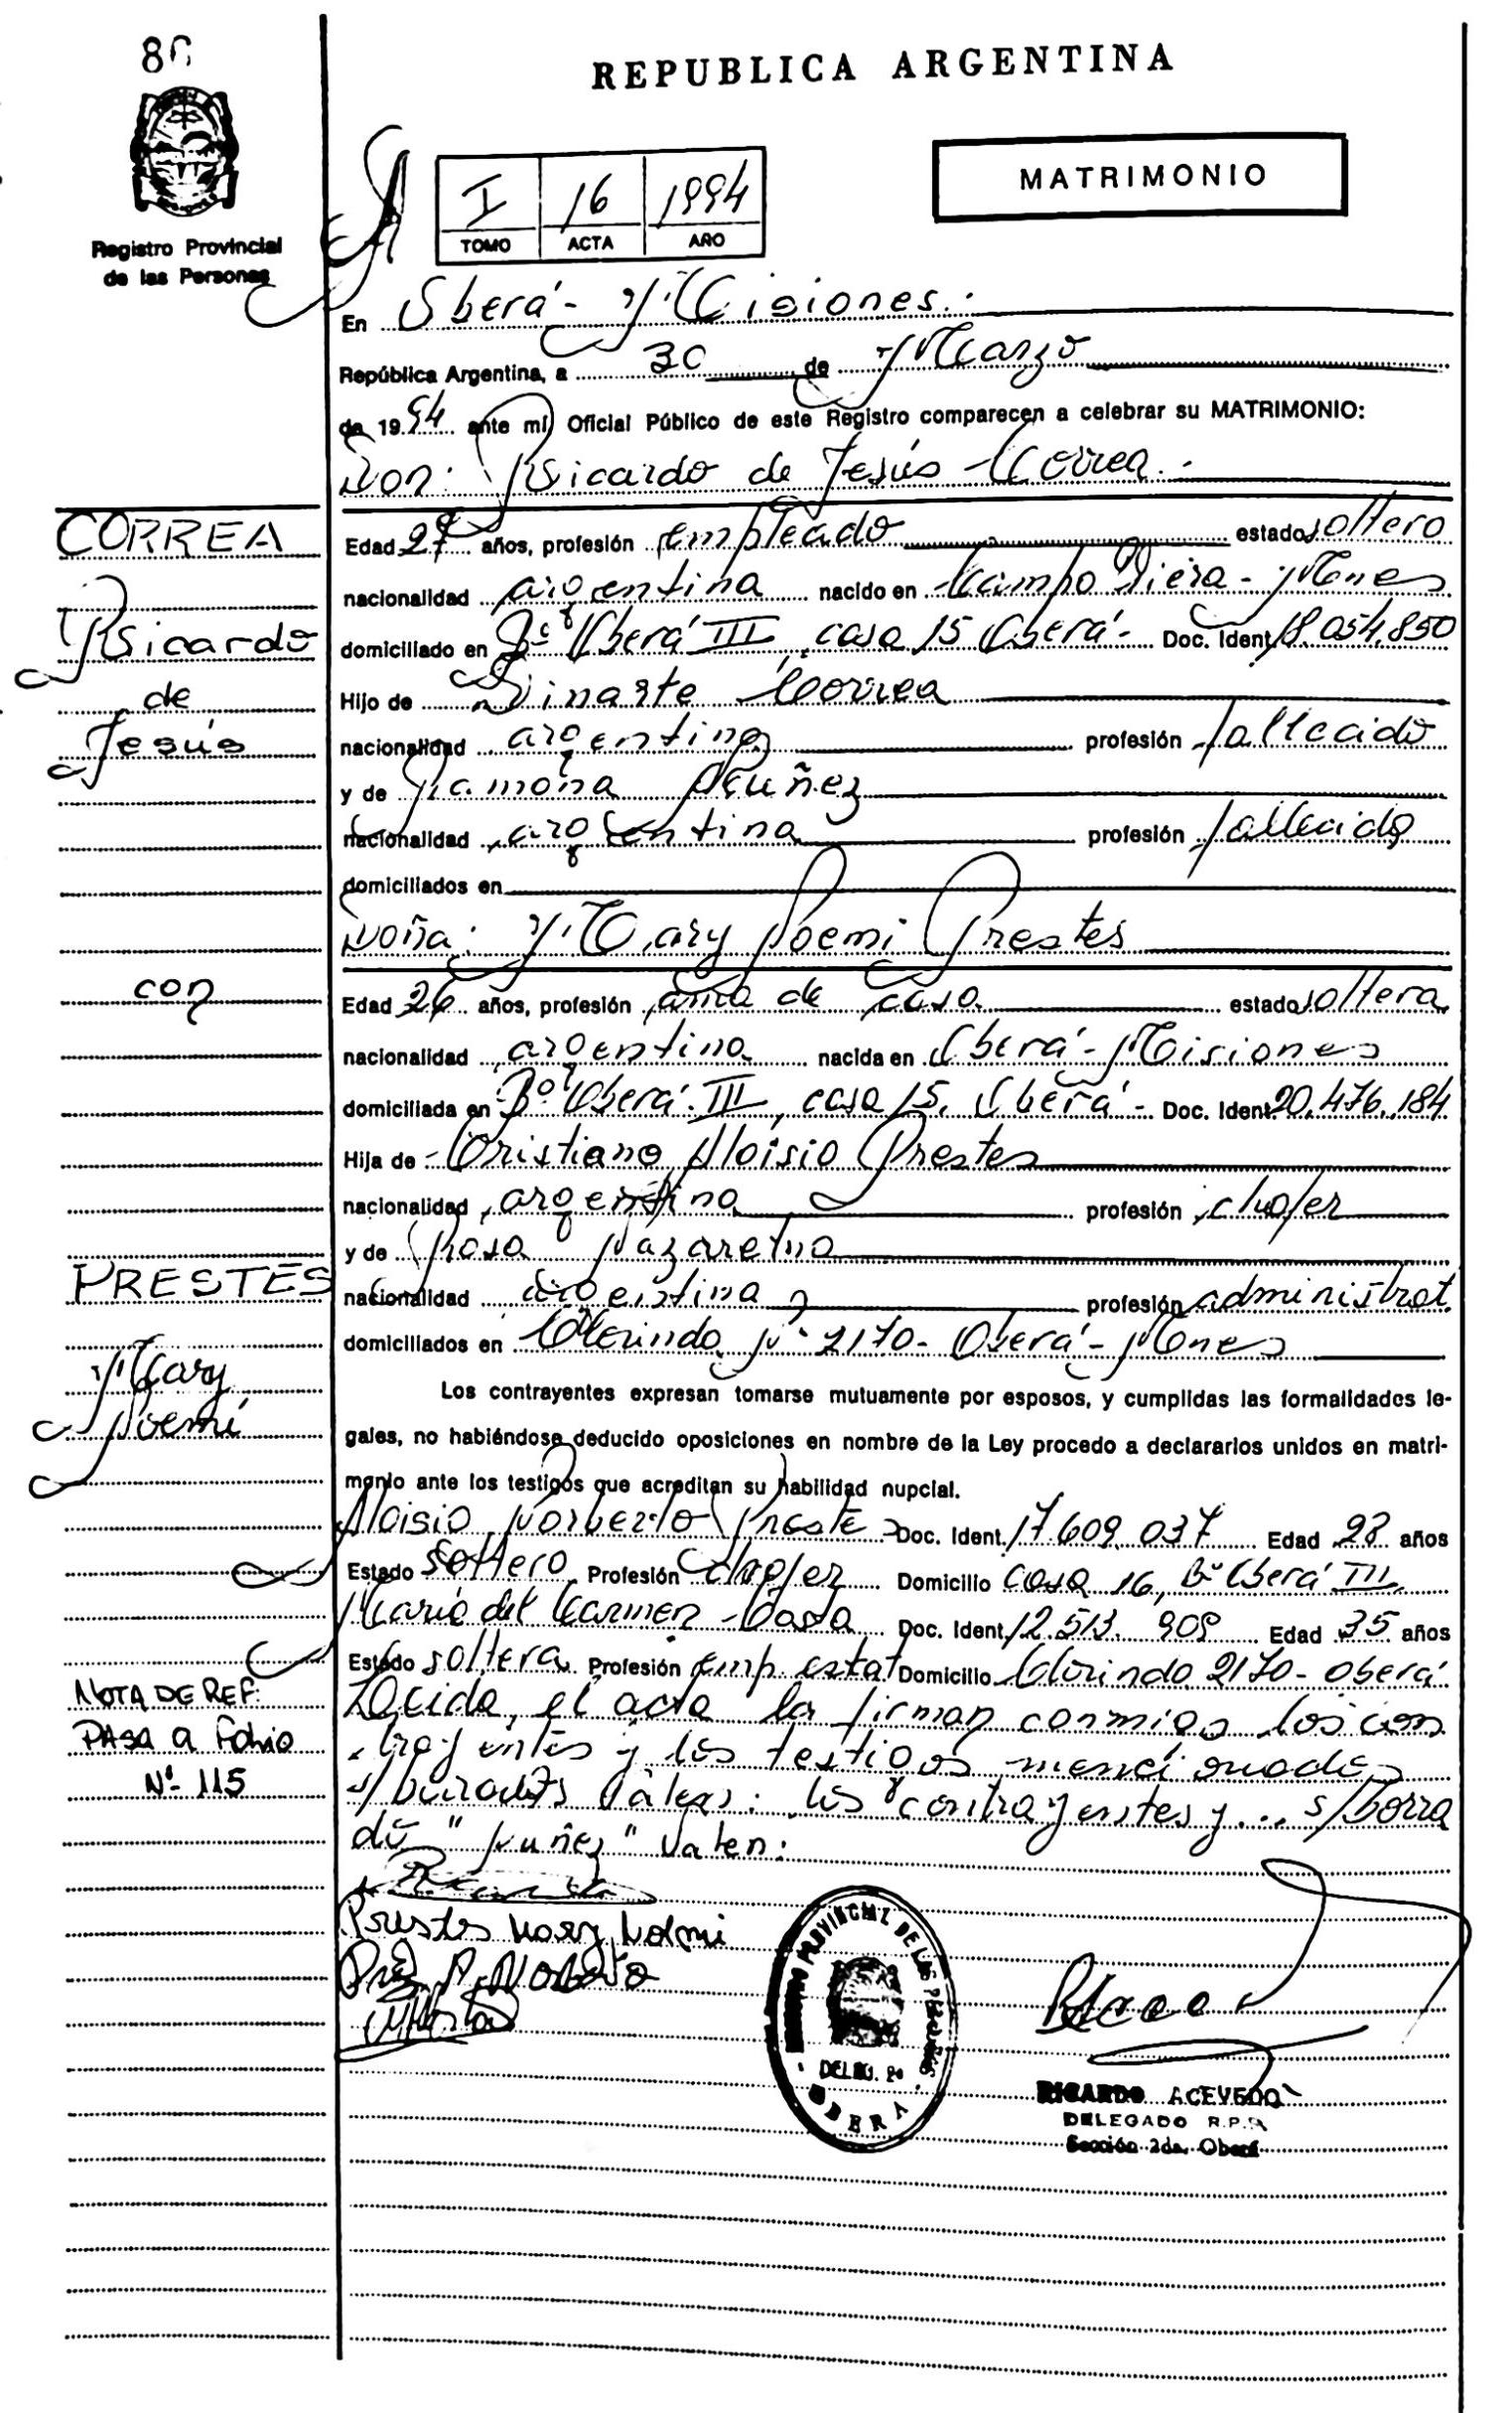 REPUBLICA ARGENTINA
Registro Provincial
de las Personas
I 16 1994
TOMO ACTA AÑO
MATRIMONIO
En Oberá - Misiones.-
República Argentina, a 30 de Marzo
de 1994 ante mí, Oficial Público de este Registro comparecen a celebrar su MATRIMONIO:
Don: Ricardo de Jesús Correa.-
CORREA
Ricardo
de
Jesús
Edad 27 años, profesión empleado estado soltero
nacionalidad argentina nacido en Campo Viera - Mnes
domiciliado en Bº Oberá III, casa 15 Oberá - Doc. Ident. 18.054.850
Hijo de Dinarte Correa
nacionalidad argentina profesión fallecido
y de Ramona Nuñez
nacionalidad argentina profesión fallecida
domiciliados en
Doña: Mary Noemi Prestes
con
Edad 26 años, profesión ama de casa estado soltera
nacionalidad argentina nacida en Oberá - Misiones
domiciliada en Bº Oberá III, casa 15, Oberá - Doc. Ident. 20.476.184
Hija de Cristiano Aloisio Prestes
nacionalidad argentina profesión chofer
y de Rosa Nazareno
PRESTES
Mary
Noemí
nacionalidad argentina profesión administrat.
domiciliados en Clorinda Nº 2170 - Oberá - Mnes
Los contrayentes expresan tomarse mutuamente por esposos, y cumplidas las formalidades le-
gales, no habiéndose deducido oposiciones en nombre de la Ley procedo a declararlos unidos en matri-
monio ante los testigos que acreditan su habilidad nupcial.
Aloisio Norberto Prestes Doc. Ident. 17.609.037 Edad 28 años
Estado soltero Profesión chofer Domicilio casa 16, Bº Oberá III
María del Carmen Doc. Ident. 12.513.909 Edad 35 años
Estado soltera Profesión emp. estat Domicilio Clorinda 2170 - Oberá
NOTA DE REF.
PASA a Folio
Nº 115
Leída el acta la firman conmigo los con
trayentes y los testigos mencionados
s/ valen: los contrayentes y... s/borra
do "Nuñez" Valen:
Prestes Mary Noemi
REGISTRO PROVINCIAL DE LAS PERSONAS
OBERA
RICARDO ACEVEDO
DELEGADO R.P.P.
Sección 2da. Oberá